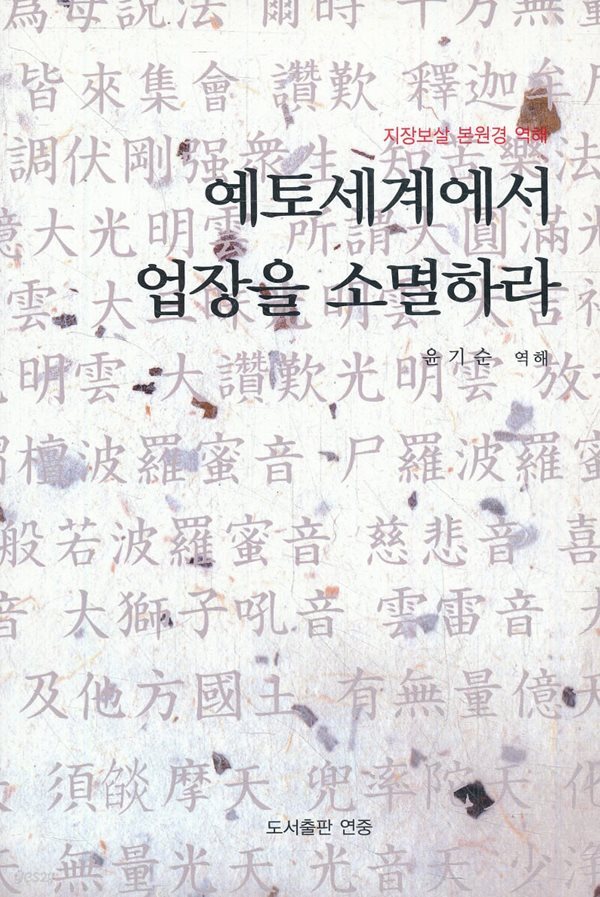 為母說法 爾時十方無量
皆來集會 讚歎 釋迦牟尼
지장보살 본원경 역해
調伏剛强衆生 知苦樂法
예토세계에서
大光明雲 所謂大圓滿光
업장을 소멸하라
雲 大
윤기순 역해
明雲 大讚歎光明雲 放
檀波羅蜜音 尸羅波羅蜜
般若波羅蜜音 慈悲音 喜
音 大獅子吼音 雲雷音 大
及他方國土 有無量億天
須燄摩天 兜率陀天 化
도서출판 연중
天
yes24